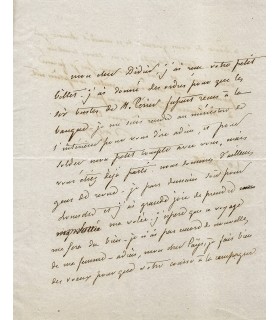 mon cher Didier, j'ai reçu votre petit
billet. j'ai donné des ordres pour que les
dix bustes de M. Périer fussent remis à la
banque. je me suis rendu au ministère de
l'intérieur pour vous dire adieu, et pour
solder mon petit compte avec vous, mais
vous étiez déjà parti. nous sommes d'ailleurs
gens de revue. je pars demain soir pour
et j'ai grand joie de prendre
ma volée. j'espère que ce voyage
me fera du bien. je n'ai pas de nouvelles
de ma femme. adieu, mon cher je fais bien
des voeux pour que votre à la campagne